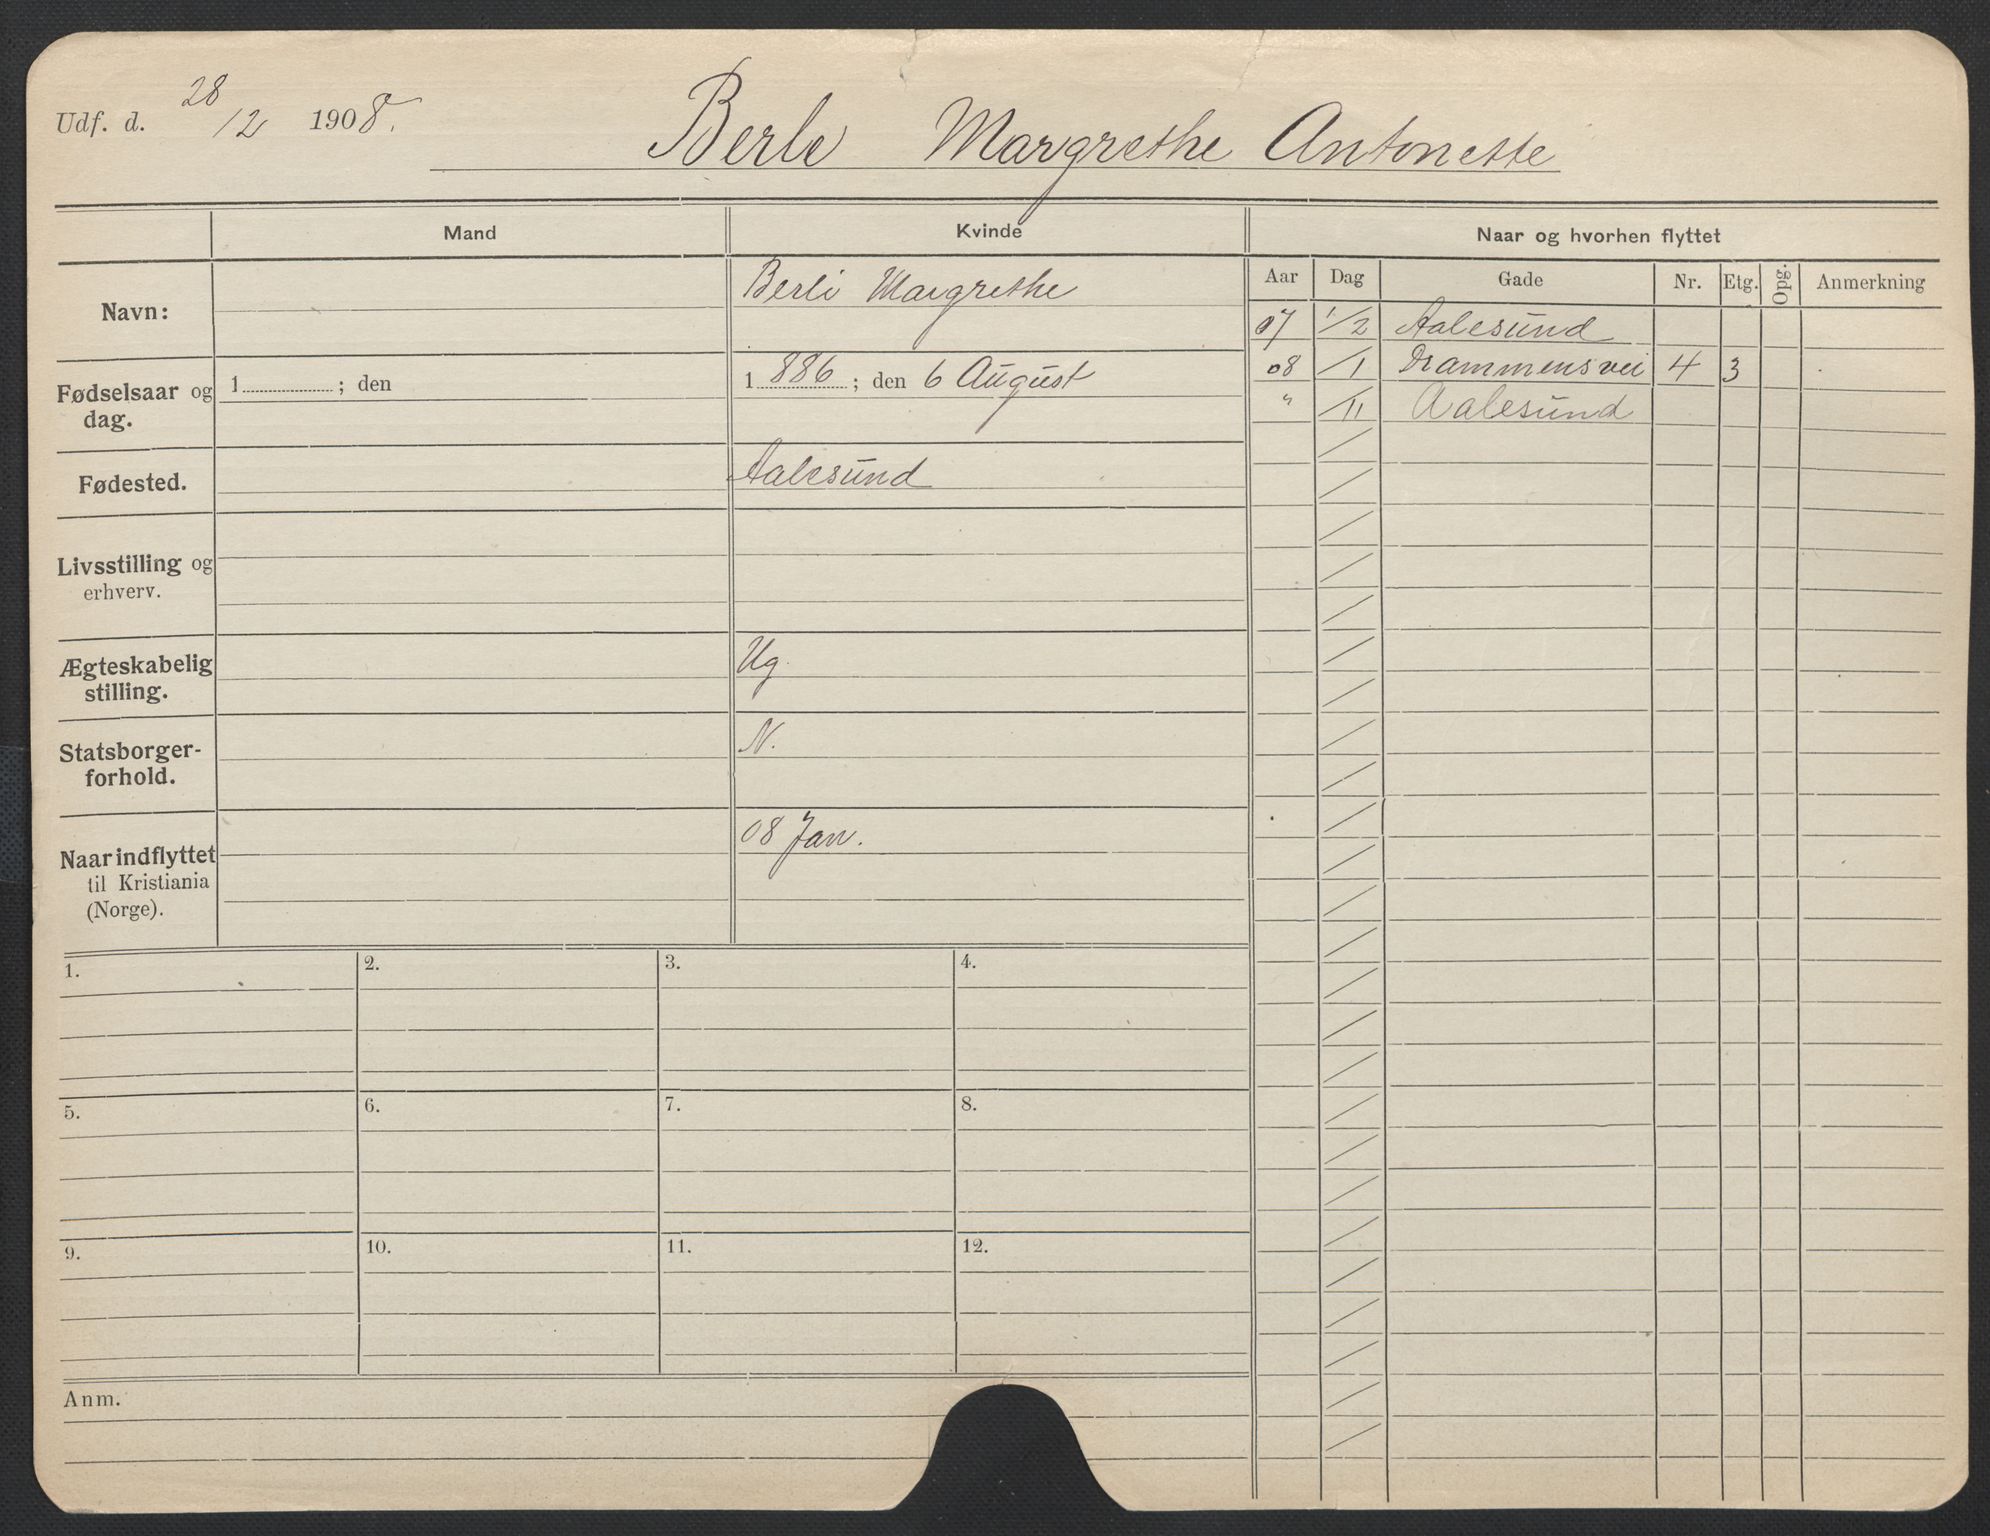 Udf. d. 28/12 1908. Berle Margrethe Antonette
Mand Kvinde Naar og hvorhen flyttet
Aar Dag Gade Nr. Etg. Opg. Anmerkning
Navn: Berle Margrethe
07 1/2 Aalesund
08 /1 Drammensvei 4 3
" /11 Aalesund
Fødselsaar og dag. 1 ; den 1 886 ; den 6 August
Fødested. Aalesund
Livsstilling og
erhverv.
Ægteskabelig
stilling. Ug.
Statsborger-
forhold. N.
Naar indflyttet 08 Jan.
til Kristiania
(Norge).
1. 2. 3. 4.
5. 6. 7. 8.
9. 10. 11. 12.
Anm.